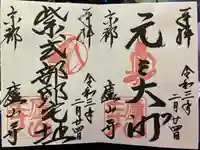 奉拝
元三大師
令和三年
二月廿四
京都
廬山寺
奉拝
紫式部邸宅址
令和三年
二月廿四
京都
廬山寺